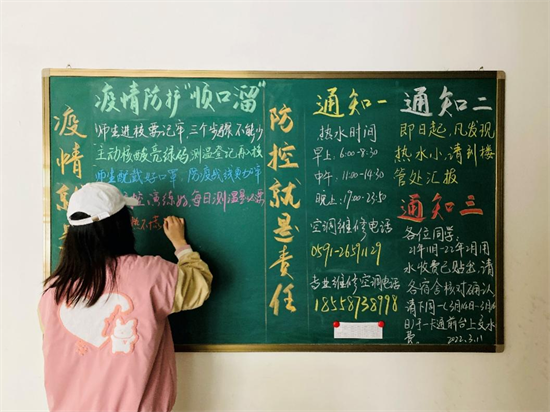 疫情就是
疫情防护"顺口溜"
师生进校要记牢 三个步骤不能少
主动核酸亮绿码 测温登记再入校
师生佩戴好口罩 防疫战线更加牢
演练好 每日测温
防控就是责任
通知一
热水时间
早上：6:00-8:30
中午：11:00-14:30
晚上：17:00-23:50
空调维修电话
0591-26591129
专业维修空调电话
18558738998
通知二
即日起，凡发现
热水小，请到楼
管处汇报
通知三
各位同学：
21年11月-22年2月用
水收费已贴出，请
各宿舍核对确认
请下周一(3月14日-3月16
日)于一卡通前台上交水
费。 2022.3.11